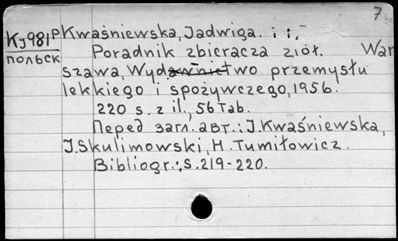 7
Kj981p Kwaśniewska, Jadwiga. i i,
ПОЛЬСК Poradnik zbieracza ziół. War
szawa, Wydawnictwo przemysłu
lekkiego i spożywczego, 1956.
220 s. z il., 56 tab.
Перед загл. авт.: J. Kwaśniewska,
J. Skulimowski, H. Tumiłowicz.
Bibliogr.: s. 219-220.